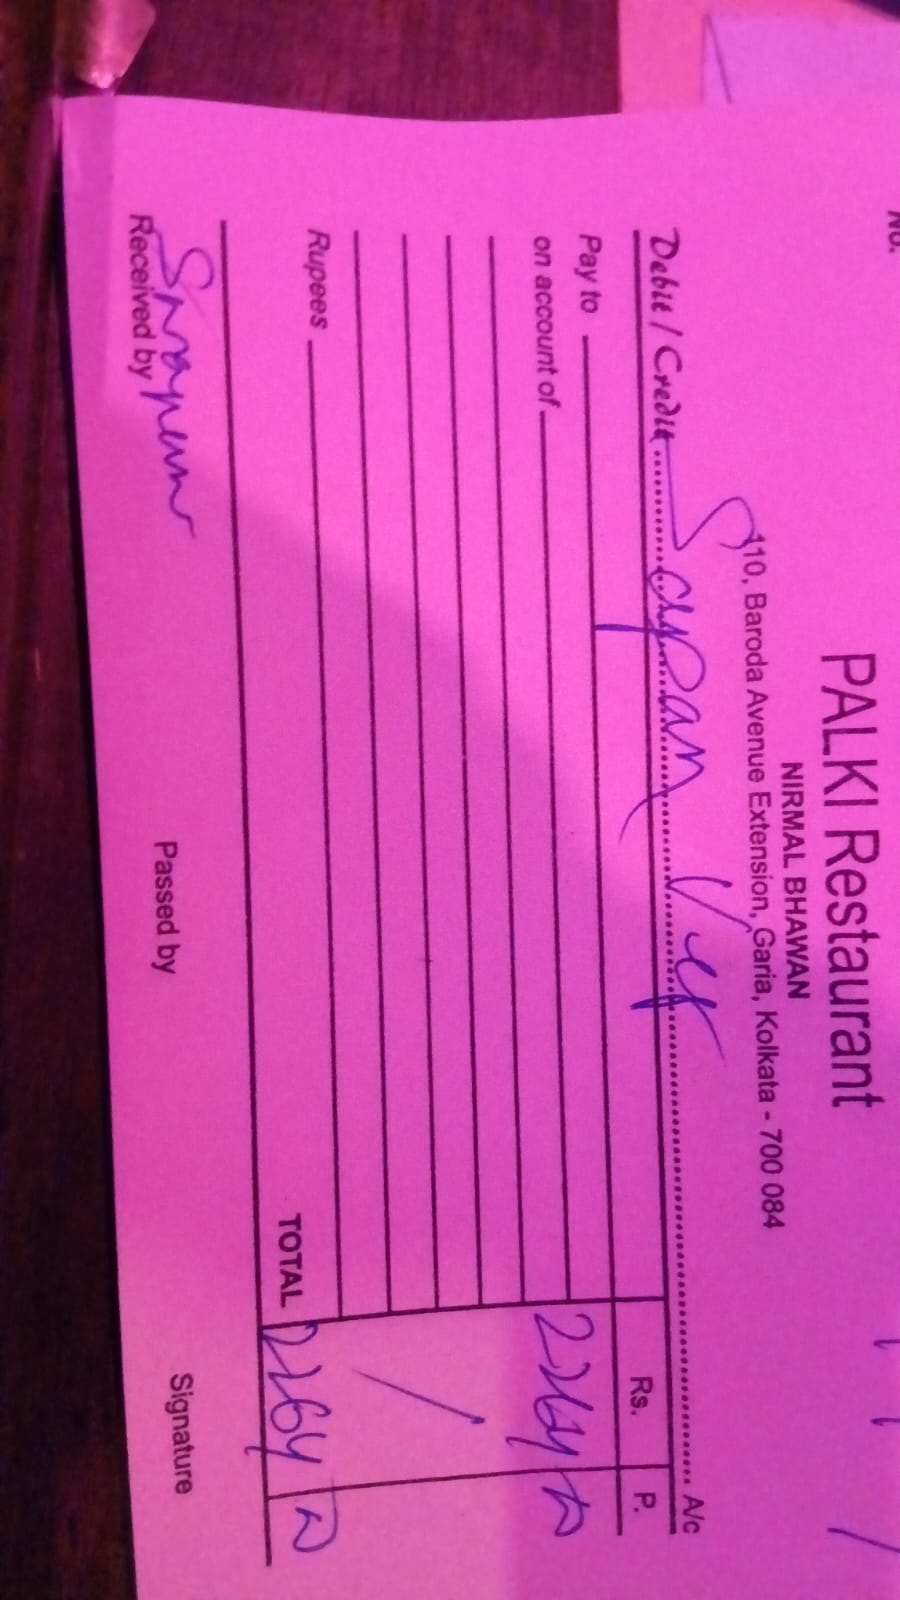 No.
PALKI Restaurant
NIRMAL BHAWAN
110, Baroda Avenue Extension, Garia, Kolkata - 700 084
Debit / Credit Sapan A/c
Rs. P.
Pay to
on account of 2264
Rupees
TOTAL 2264
Received by Passed by Signature